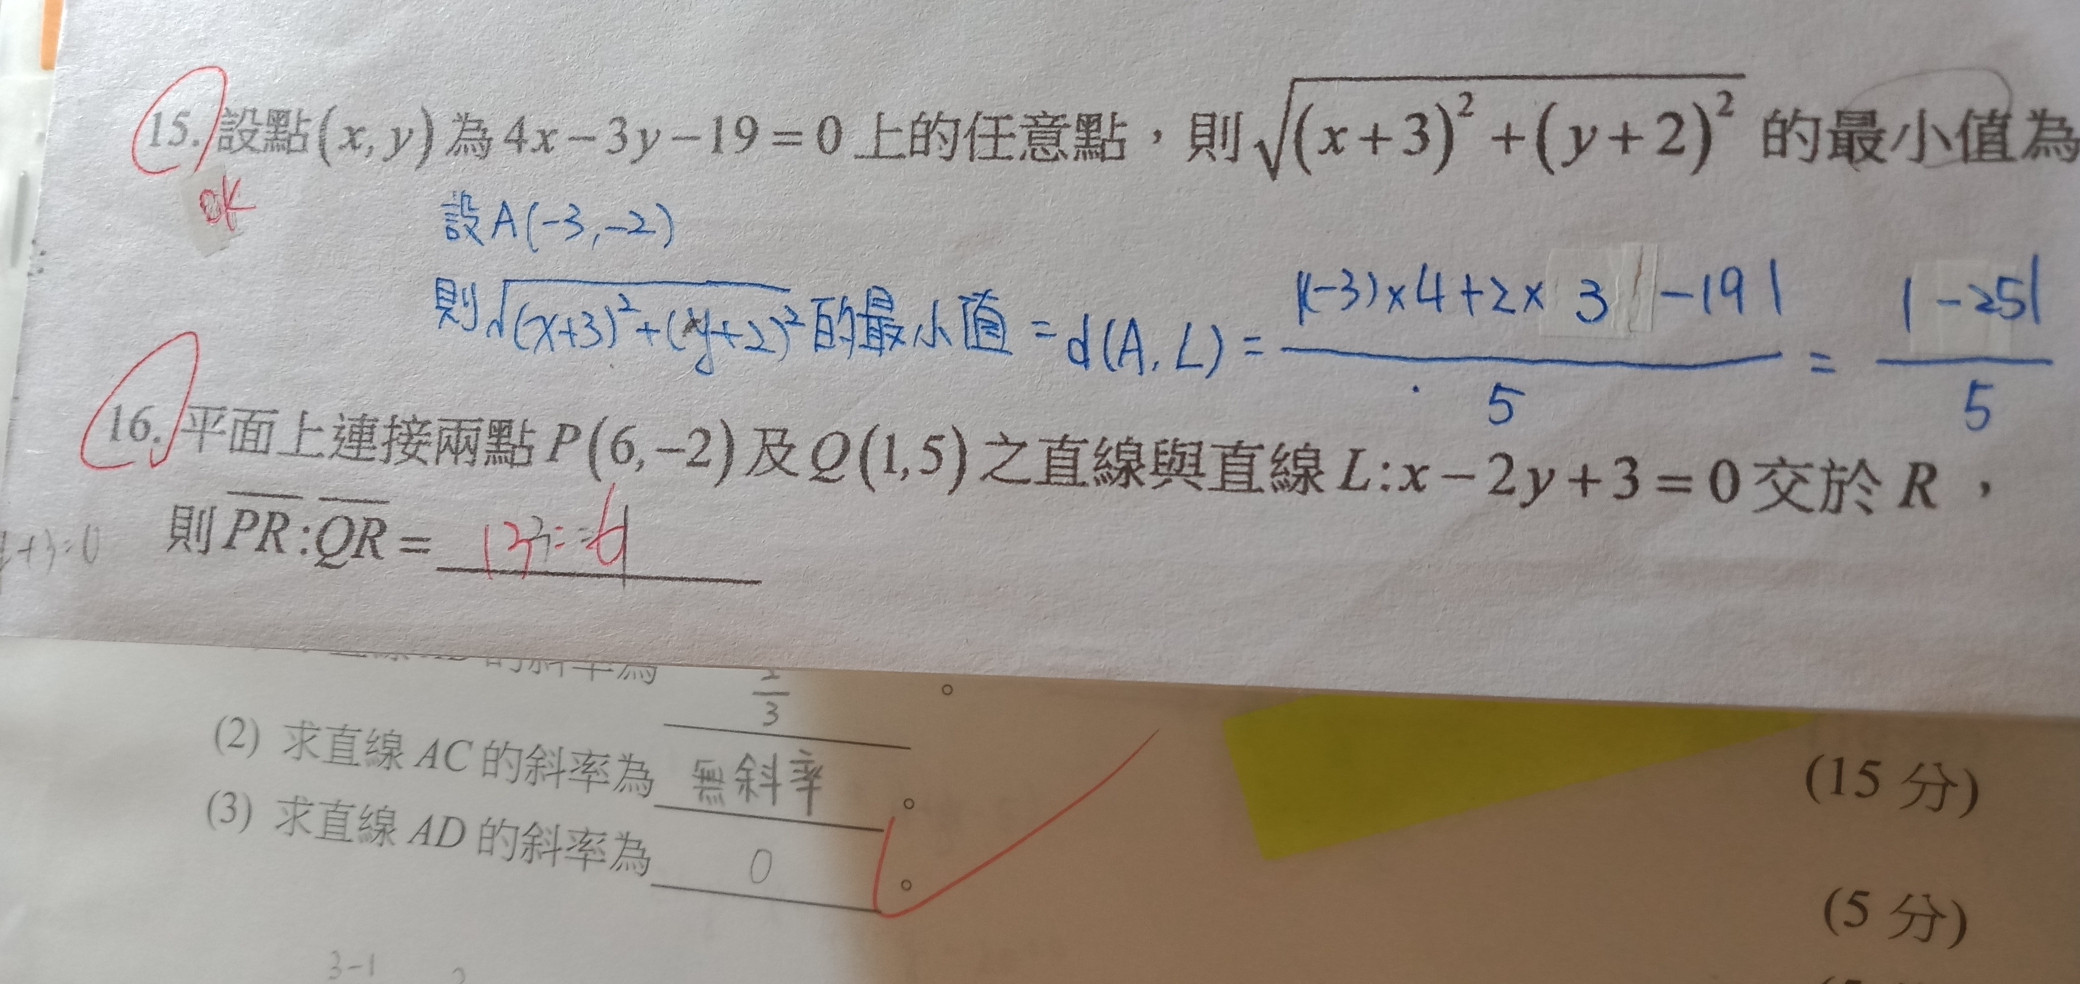 15. 設點(x, y)為4x-3y-19=0上的任意點，則√(x+3)²+(y+2)² 的最小值為
ok
設A(-3,-2)
則√(x+3)²+(y+2)² 的最小值 = d(A, L) = |(-3)×4+2×3-19| / 5 = |-25| / 5
16. 平面上連接兩點P(6,-2)及Q(1,5)之直線與直線L:x-2y+3=0交於R，
則PR:QR=
+3=0
2/3 。
(2) 求直線AC的斜率為 無斜率 。
(15分)
(3) 求直線AD的斜率為 0 。
(5分)
3-1